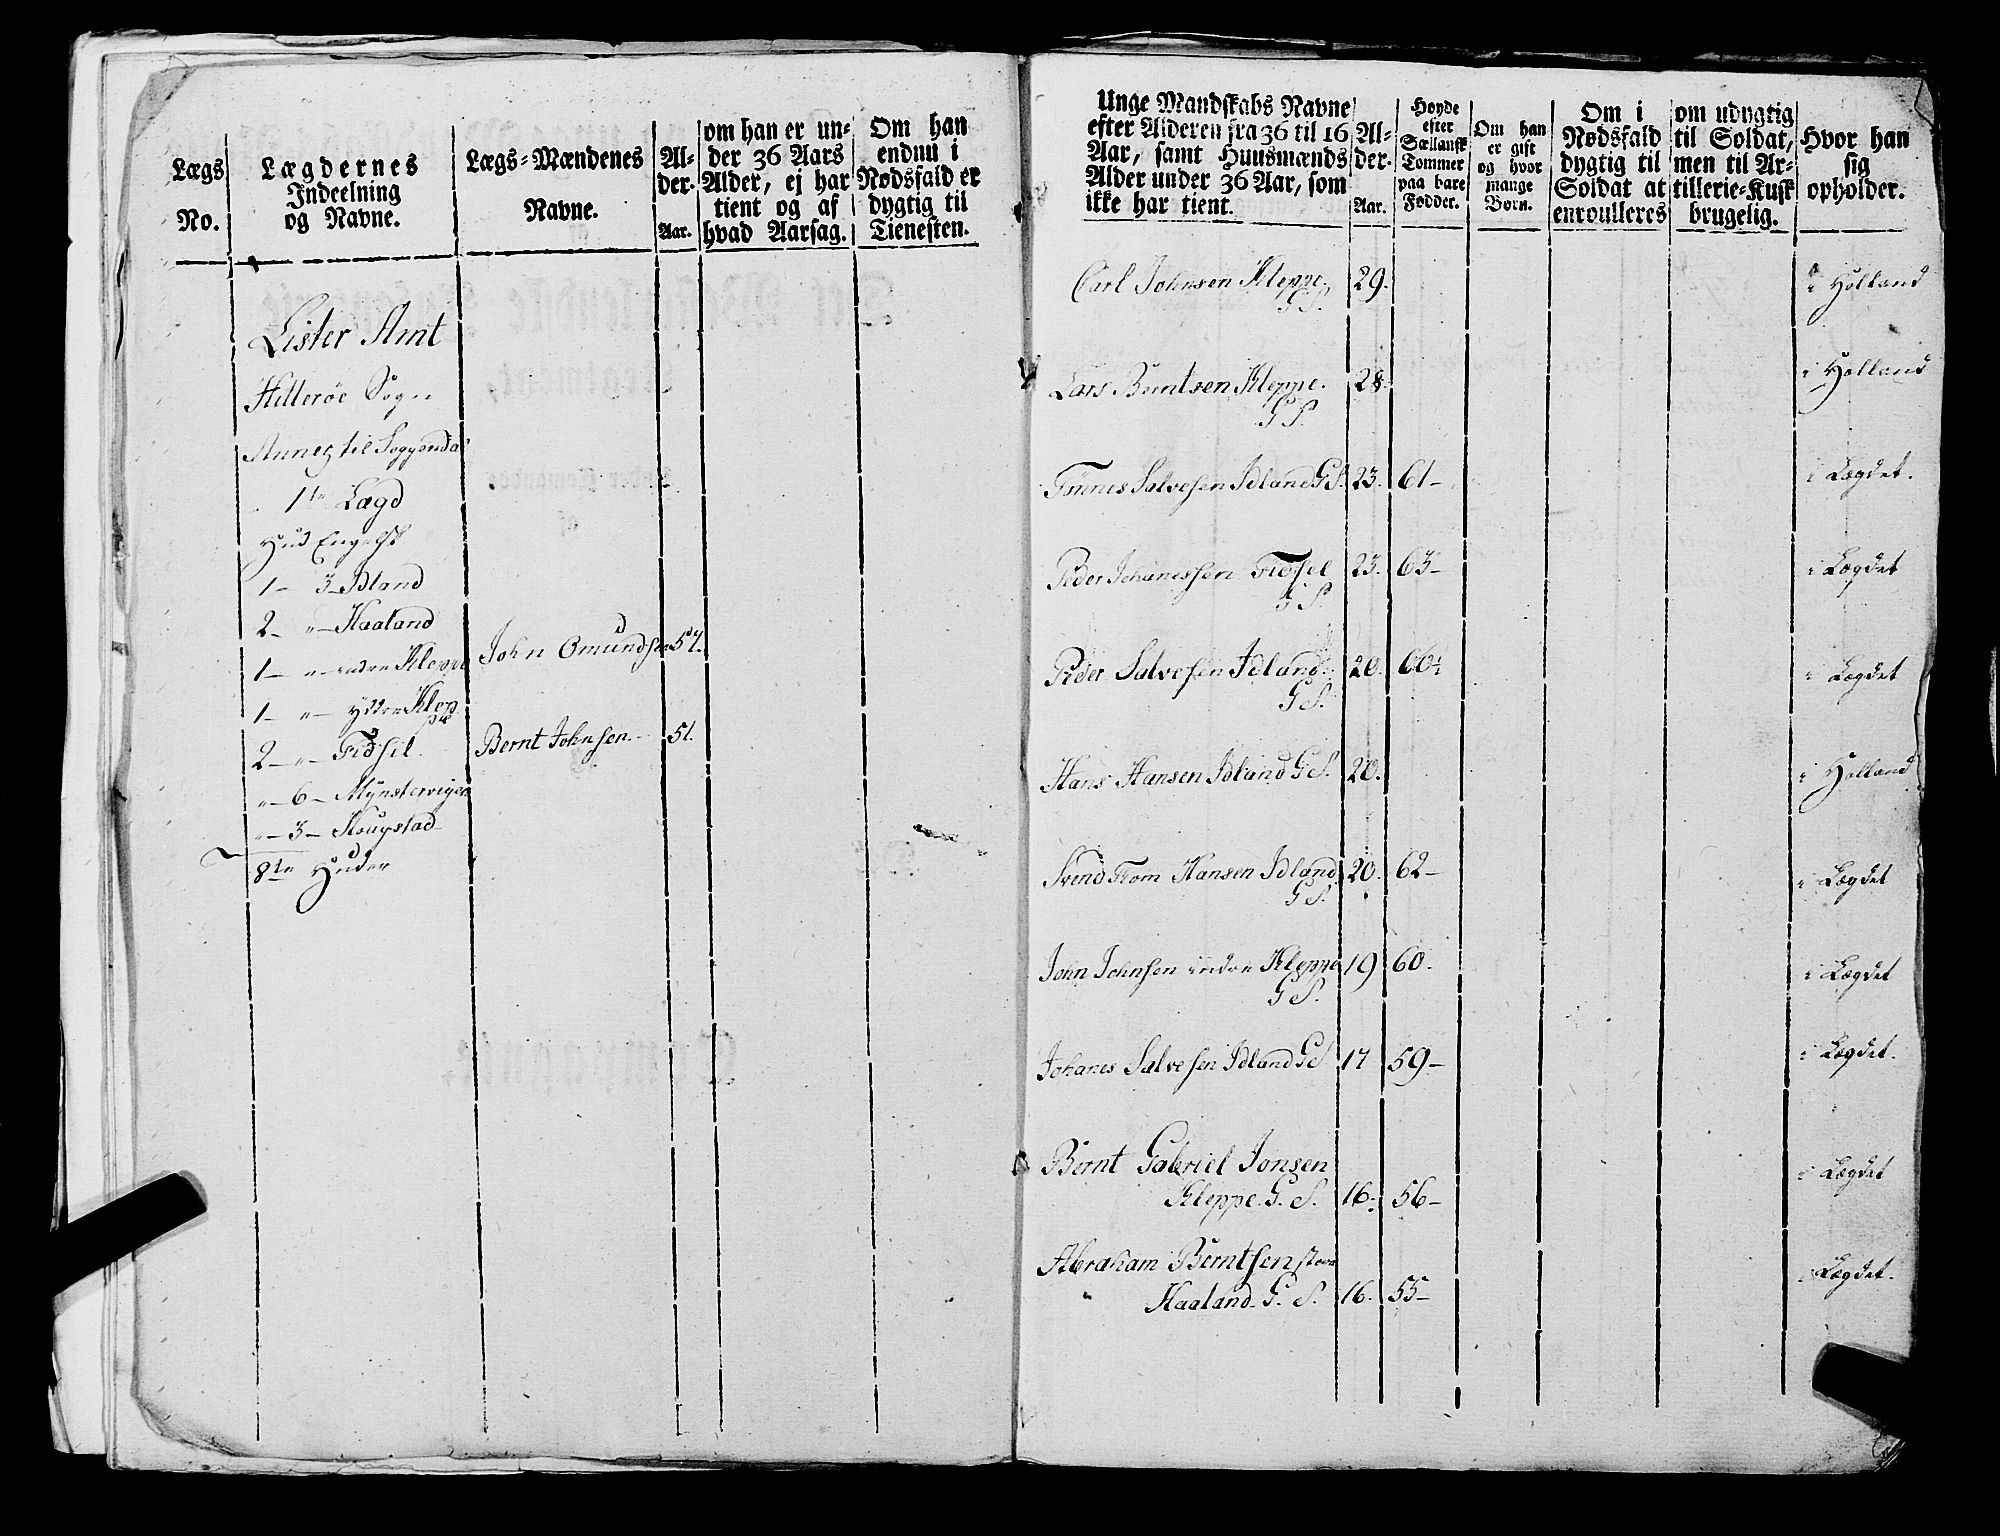 Lægs
No.
Lægdernes
Indeelning
og Navne.
Lægs=Mændenes
Navne.
Al=
der.
Aar.
om han er un=
der 36 Aars
Alder, ej har
tient og af
hvad Aarsag.
Om han
endnu i
Nødsfald er
dygtig til
Tienesten.
Lister Amt
Hitterøe Sogn
Annex til Soggendal
1te Lægd
Hud Engelsk
1 - 3 - Idland
2 - " - Haaland
1 - " - indre Kleppe
John Omundsen 57.
1 - " - ydtre Klep
pe
2 - " - Fidsel
Bernt Johnsen - 51.
" - 6 - Mÿnstervigen
" - 3 - Hougstad
8te Huder
Unge Mandskabs Navne
efter Alderen fra 36 til 16
Aar, samt Huusmænds
Alder under 36 Aar, som
ikke har tient.
Al=
der.
Aar.
Høyde
efter
Sællansk
Tommer
paa bare
Fødder.
Om han
er gift
og hvor
mange
Børn.
Om i
Nødsfald
dygtig til
Soldat at
enroulleres
om udygtig
til Soldat,
men til Ar=
tillerie=Kusk
brugelig.
Hvor han
sig
opholder.
Carl Johnsen Kleppe 29. i Holland
G S.
Lars Berntsen Kleppe. 28. i Holland
G S.
Tønnes Salvesen Idland G S. 23. 61 - i Lægdet.
Peder Johanessen Fidsel 23. 63 - i Lægdet
G S.
Peder Salvesen Idland 20. 60 i Lægdet
G S.
Hans Hansen Idland G S. 20. i Holland
Svend From Hansen Idland 20. 62 - i Lægdet
G S.
John Johnsen indre Kleppe 19 60. i Lægdet
G S.
Johanes Salvesen Idland G S 17 59 - i Lægdet.
Bernt Gabriel Jonsen i Lægdet
Kleppe. G. S. 16. 56 -
Abraham Berntsen store i Lægdet.
Haaland G. S. 16. 55 -